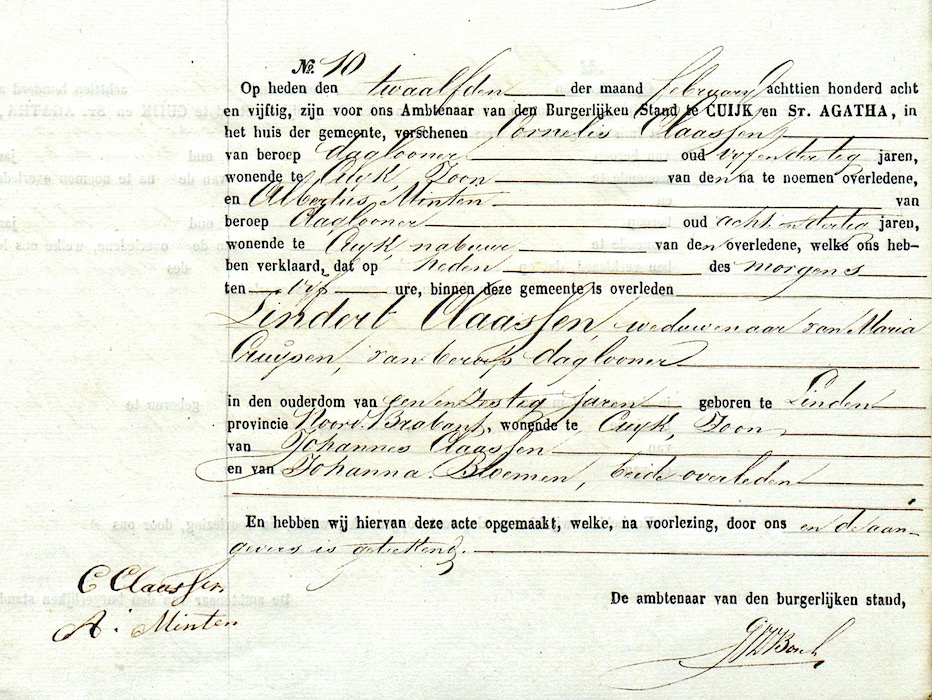 No. 10
Op heden den twaalfden der maand february achttien honderd acht
en vijftig, zijn voor ons Ambtenaar van den Burgerlijken Stand te CUIJK en ST. AGATHA, in
het huis der gemeente, verschenen Cornelis Claassen,
van beroep daglooner oud vijf en dertig jaren,
wonende te Cuyk, Zoon van den na te noemen overledene,
en Albertus Minten van
beroep daglooner oud acht en dertig jaren,
wonende te Cuyk, nabuur van den overledene, welke ons heb-
ben verklaard, dat op heden des morgens
ten vijf ure, binnen deze gemeente is overleden
Lindert Claassen, weduwenaar van Maria
Cruysen, van beroep daglooner
in den ouderdom van een en Zestig jaren geboren te Linden
provincie Noord Braband, wonende te Cuyk, Zoon
van Johannes Claassen
en van Johanna Bloemen, beide overleden
En hebben wij hiervan deze acte opgemaakt, welke, na voorlezing, door ons en de aan-
gevers is geteekend.
C Claassen
A. Minten
De ambtenaar van den burgerlijken stand,